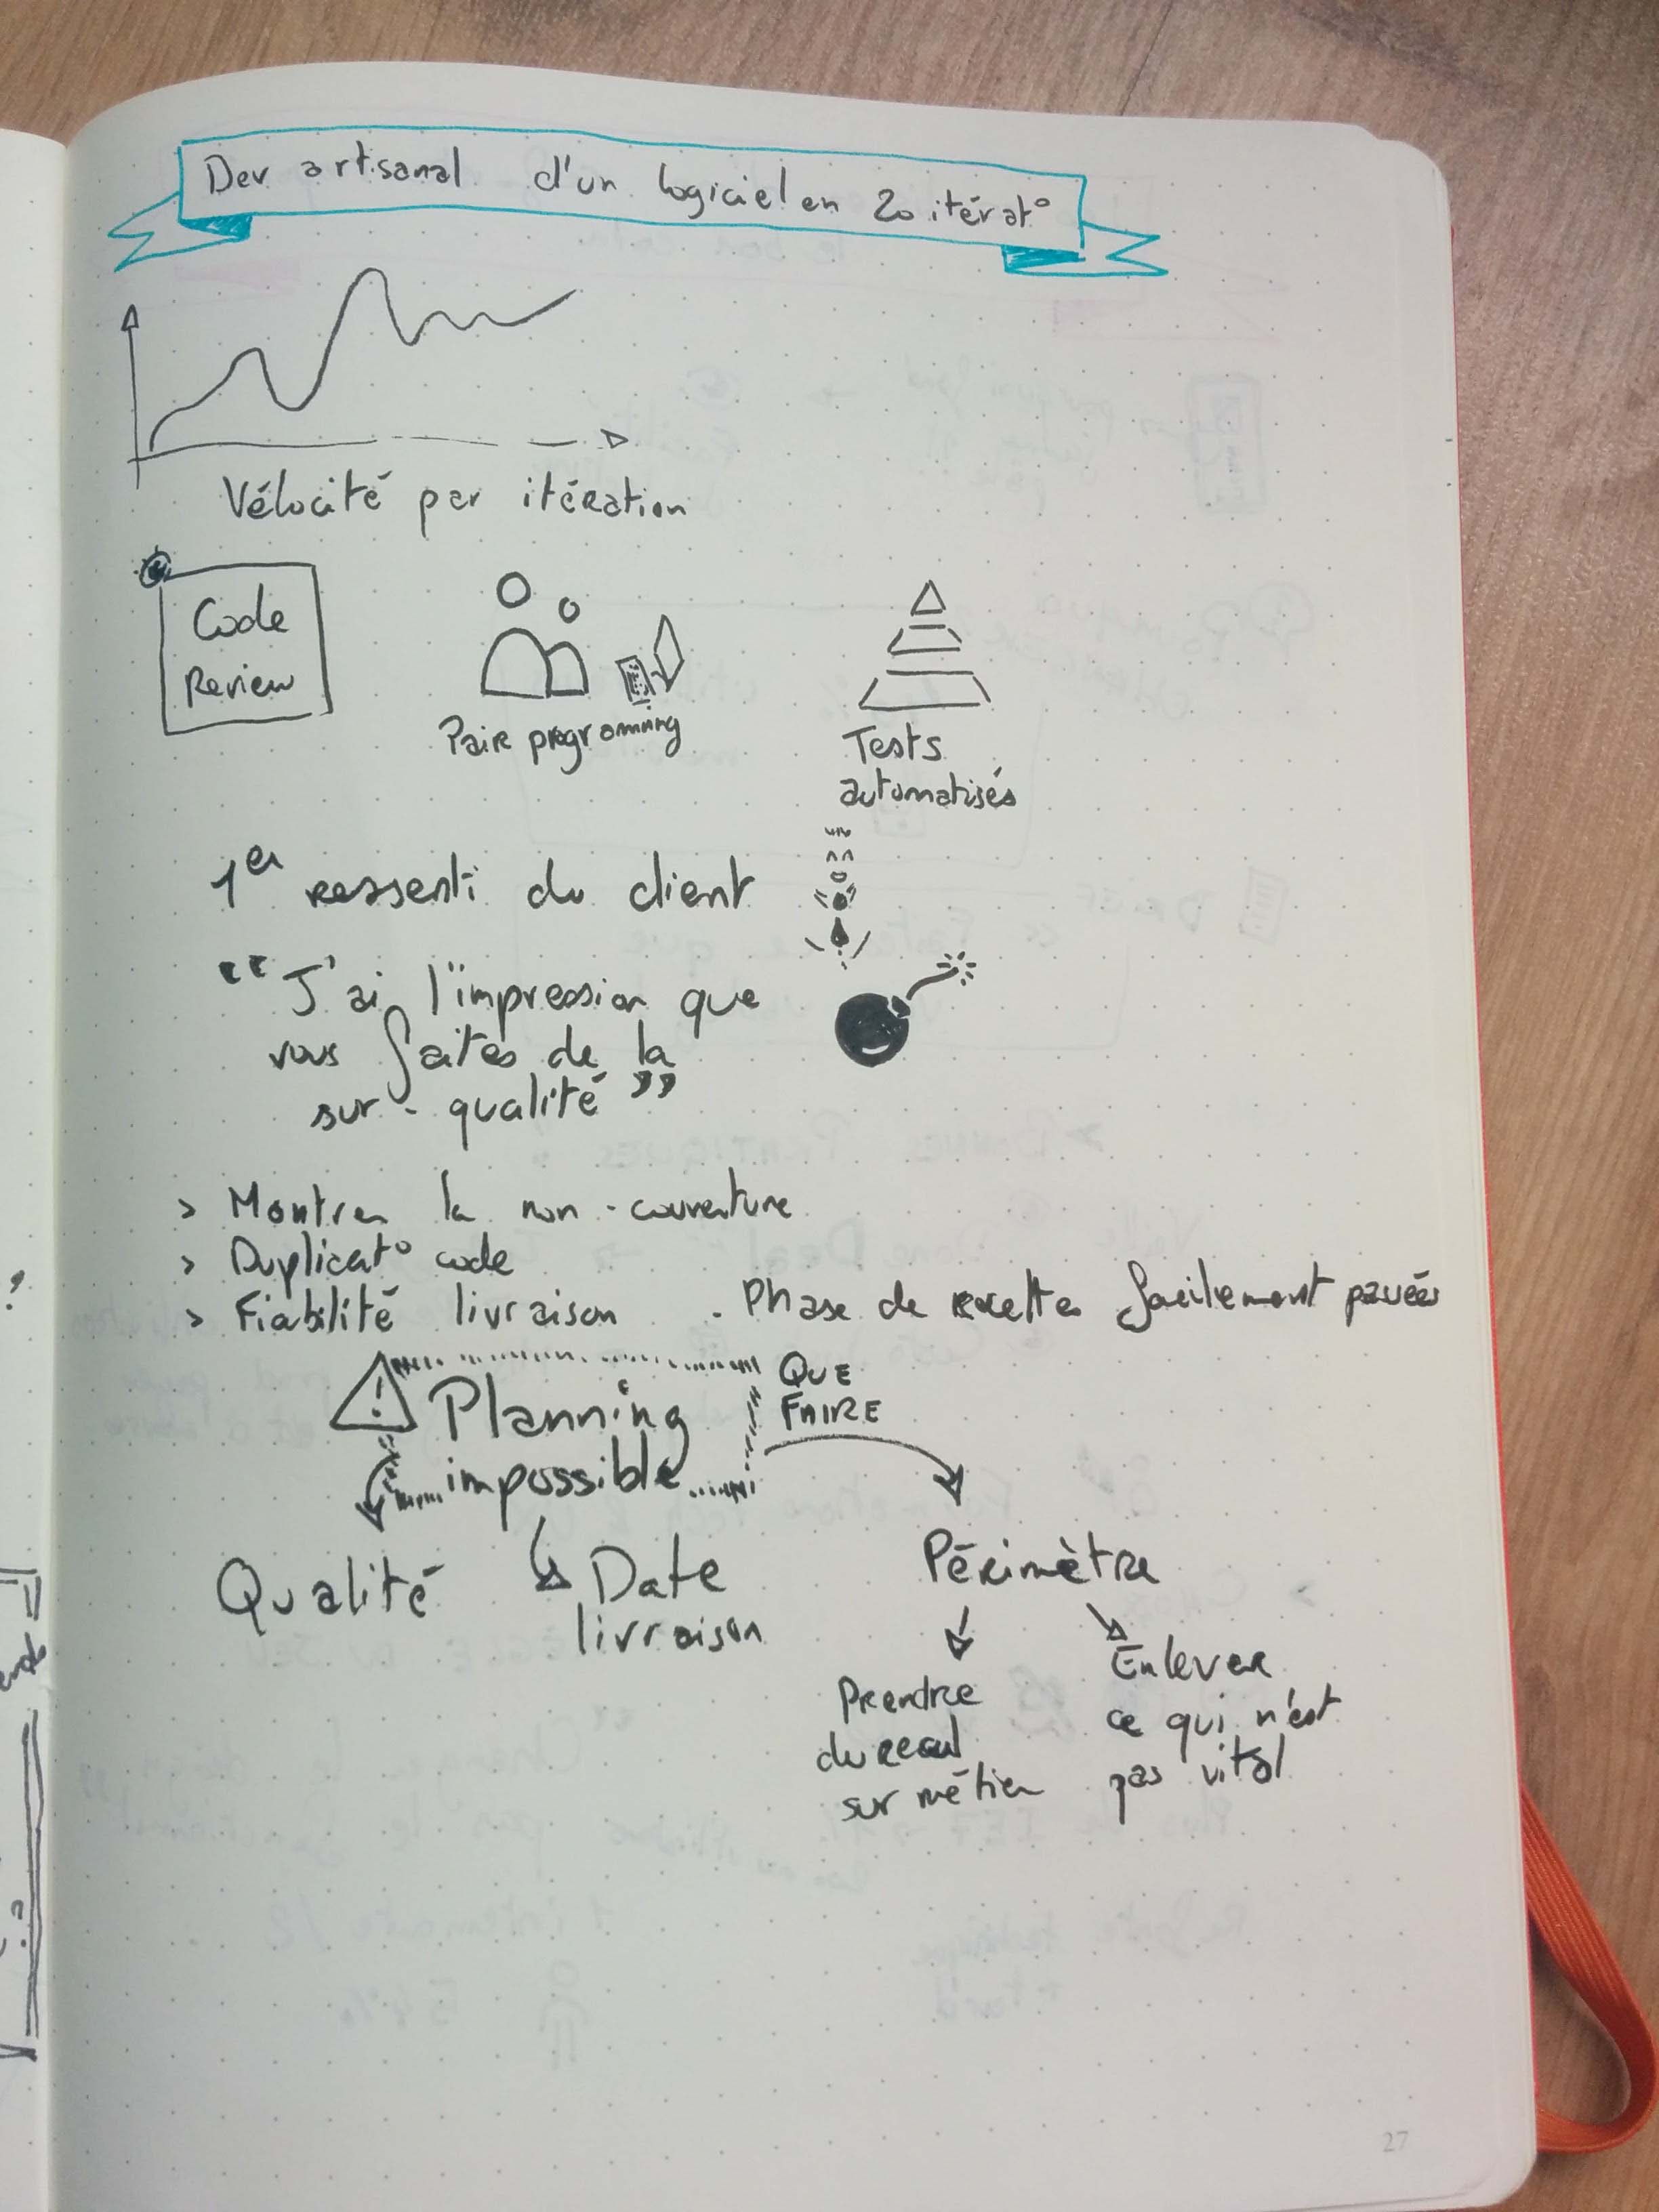 Dev artisanal d'un logiciel en 20 itérat°
Vélocité par itération
Code
Review
Paire programming
Tests
automatisés
1er ressenti du client
“ J'ai l'impression que
vous faites de la
sur-qualité ”
> Montrer la non-couverture
> Duplicat° code
> Fiabilité livraison . Phase de recettes facilement passées
! Planning
impossible
QUE
FAIRE
Qualité
Date
livraison
Périmètre
Prendre
du recul
sur métier
Enlever
ce qui n'est
pas vital
27